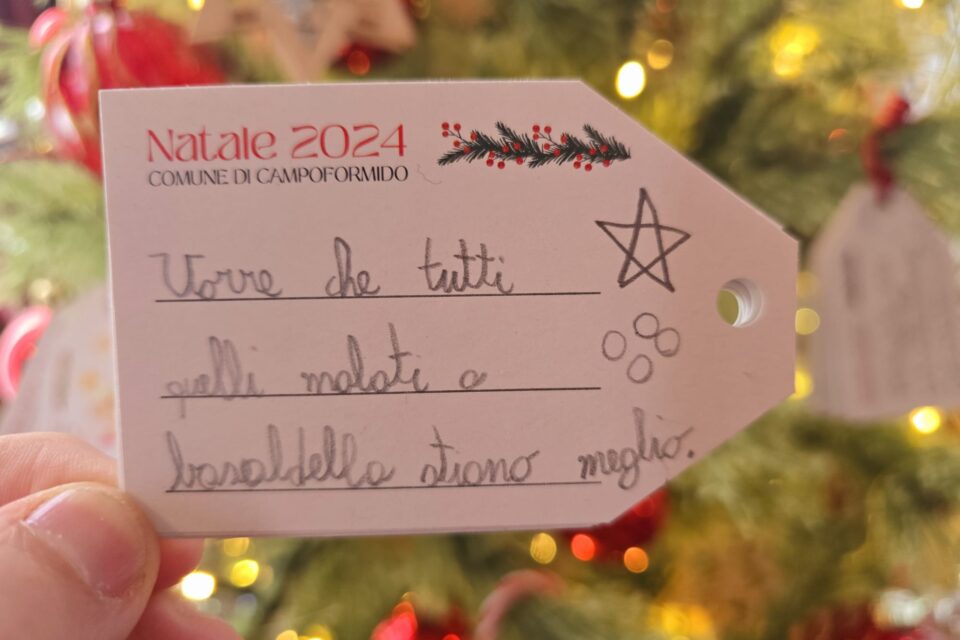 Natale 2024
COMUNE DI CAMPOFORMIDO
Vorre che tutti
quelli malati a
basaldella stiano meglio.